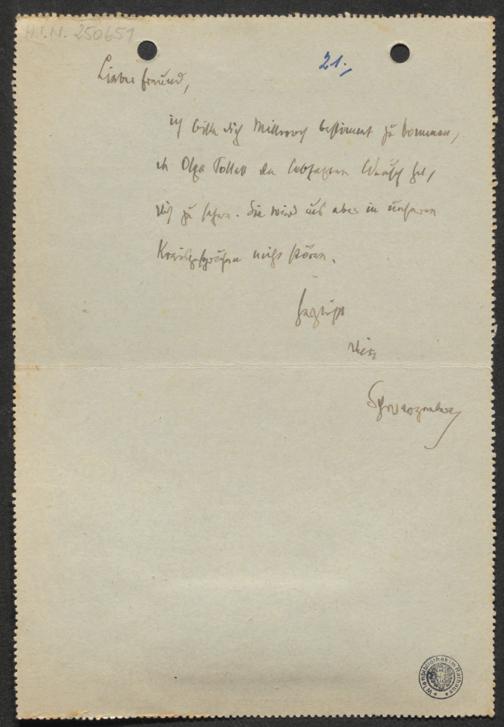 H.I.N. 250651
21.,
Lieber Freund,
ich bitte dich Mittwoch bestimmt zu kommen,
da Olga den lebhaften Wunsch hat,
dich zu sehen. Sie wird uns aber in unseren
nicht stören.
Herzlichst
dein
Schwarzwald
Wienbibliothek im Rathaus